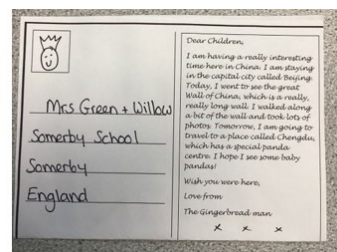 Mrs Green + Willow
Somerby School
Somerby
England
Dear Children,
I am having a really interesting
time here in China. I am staying
in the capital city called Beijing.
Today, I went to see the great
Wall of China, which is a really,
really long wall. I walked along
a bit of the wall and took lots of
photos. Tomorrow, I am going to
travel to a place called Chengdu,
which has a special panda
centre. I hope I see some baby
pandas!
Wish you were here,
Love from
The Gingerbread man
x x x